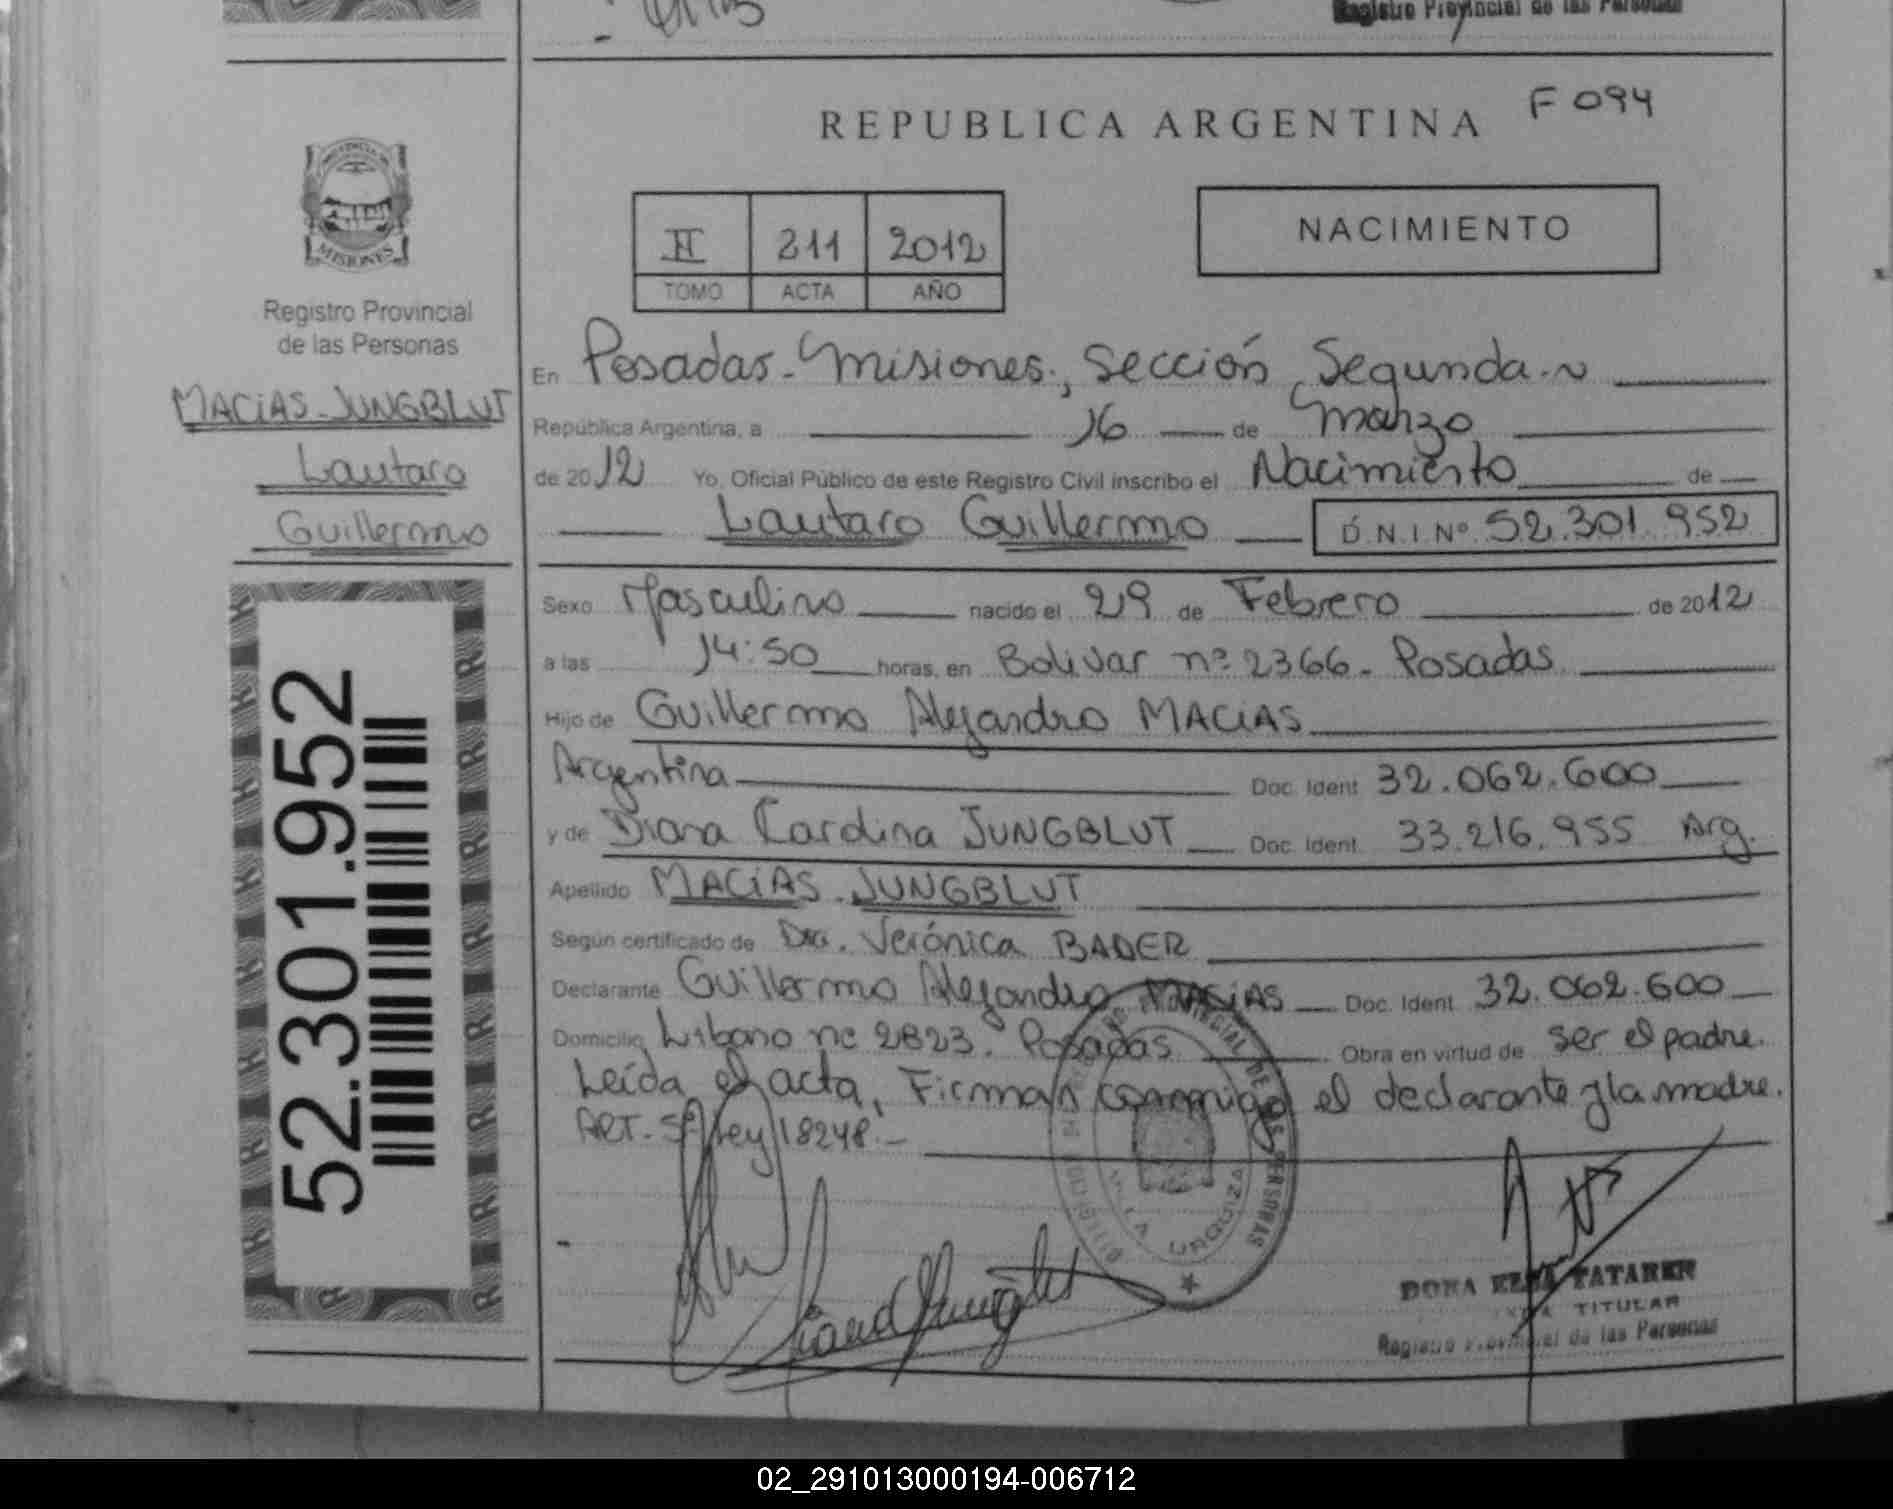 Registro Provincial de las Personas
REPUBLICA ARGENTINA F 094
PROVINCIA DE
MISIONES
Registro Provincial
de las Personas
MACiAS-JUNGBLUT
Lautaro
Guillermo
52.301.952
II 211 2012
TOMO ACTA AÑO
NACIMIENTO
En Posadas-Misiones, Sección Segunda.~
República Argentina, a 16 de Marzo
de 2012 Yo, Oficial Público de este Registro Civil inscribo el Nacimiento de
Lautaro Guillermo D.N.I.Nº 52.301.952
Sexo Masculino nacido el 29 de Febrero de 2012
a las 14:50 horas, en Bolivar nº 2366- Posadas
Hijo de Guillermo Alejandro MACiAS
Argentina Doc. Ident. 32.062.600
y de Diana Carolina JUNGBLUT Doc. Ident. 33.216.955 Arg.
Apellido MACiAS-JUNGBLUT
Según certificado de Dra. Verónica BADER
Declarante Guillermo Alejandro MACiAS Doc. Ident. 32.062.600
Domicilio Libano nº 2823. Posadas Obra en virtud de ser el padre.
Leída el acta, Firman conmigo el declarante y la madre.
ART. 5º ley 18248.-
PROVINCIAL DE LAS PERSONAS
VILLA URQUIZA
TATAREN
TITULAR
Registro Provincial de las Personas
02_291013000194-006712